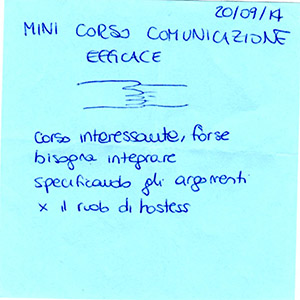 20/09/14
MINI CORSO COMUNICAZIONE
EFFICACE
corso interessante, forse
bisogna integrare
specificando gli argomenti
x il ruolo di hostess